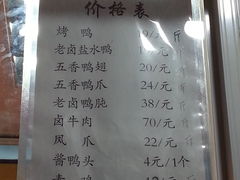 价格表
烤鸭 9/元 斤
老卤盐水鸭 元 斤
五香鸭翅 20/元 斤
五香鸭爪 24/元 斤
老卤鸭肫 38/元 斤
卤牛肉 70/元 斤
凤爪 22/元 斤
酱鸭头 4元/1个